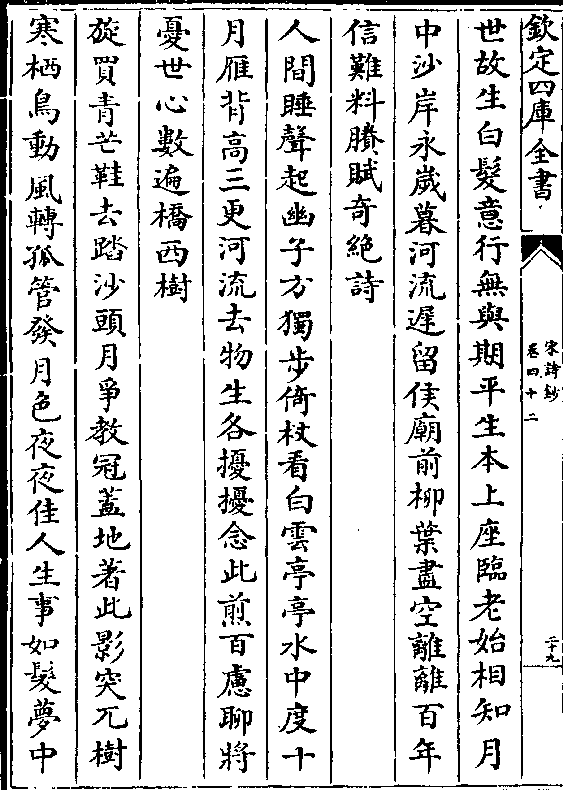 欽定四庫全書
宋詩鈔
卷四十二
二十九
世故生白髮意行無與期平生本上座臨老始相知月
中沙岸永歲暮河流遲留侯廟前柳葉盡空離離百年
信難料賸賦奇絶詩
人間睡聲起幽子方獨步倚杖看白雲亭亭水中度十
月雁背高三更河流去物生各擾擾念此煎百慮聊將
憂世心數遍橋西樹
旋買青芒鞋去踏沙頭月爭教冠蓋地著此影突兀樹
寒栖鳥動風轉孤管發月色夜夜佳人生事如髮夢中